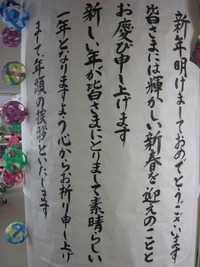 新年明けましておめでとうございます
皆さまには輝かしい新春を迎えのことと
お慶び申し上げます
新しい年が皆さまにとりまして素晴らしい
一年となりますよう心からお祈り申し上げ
まして、年頭の挨拶といたします